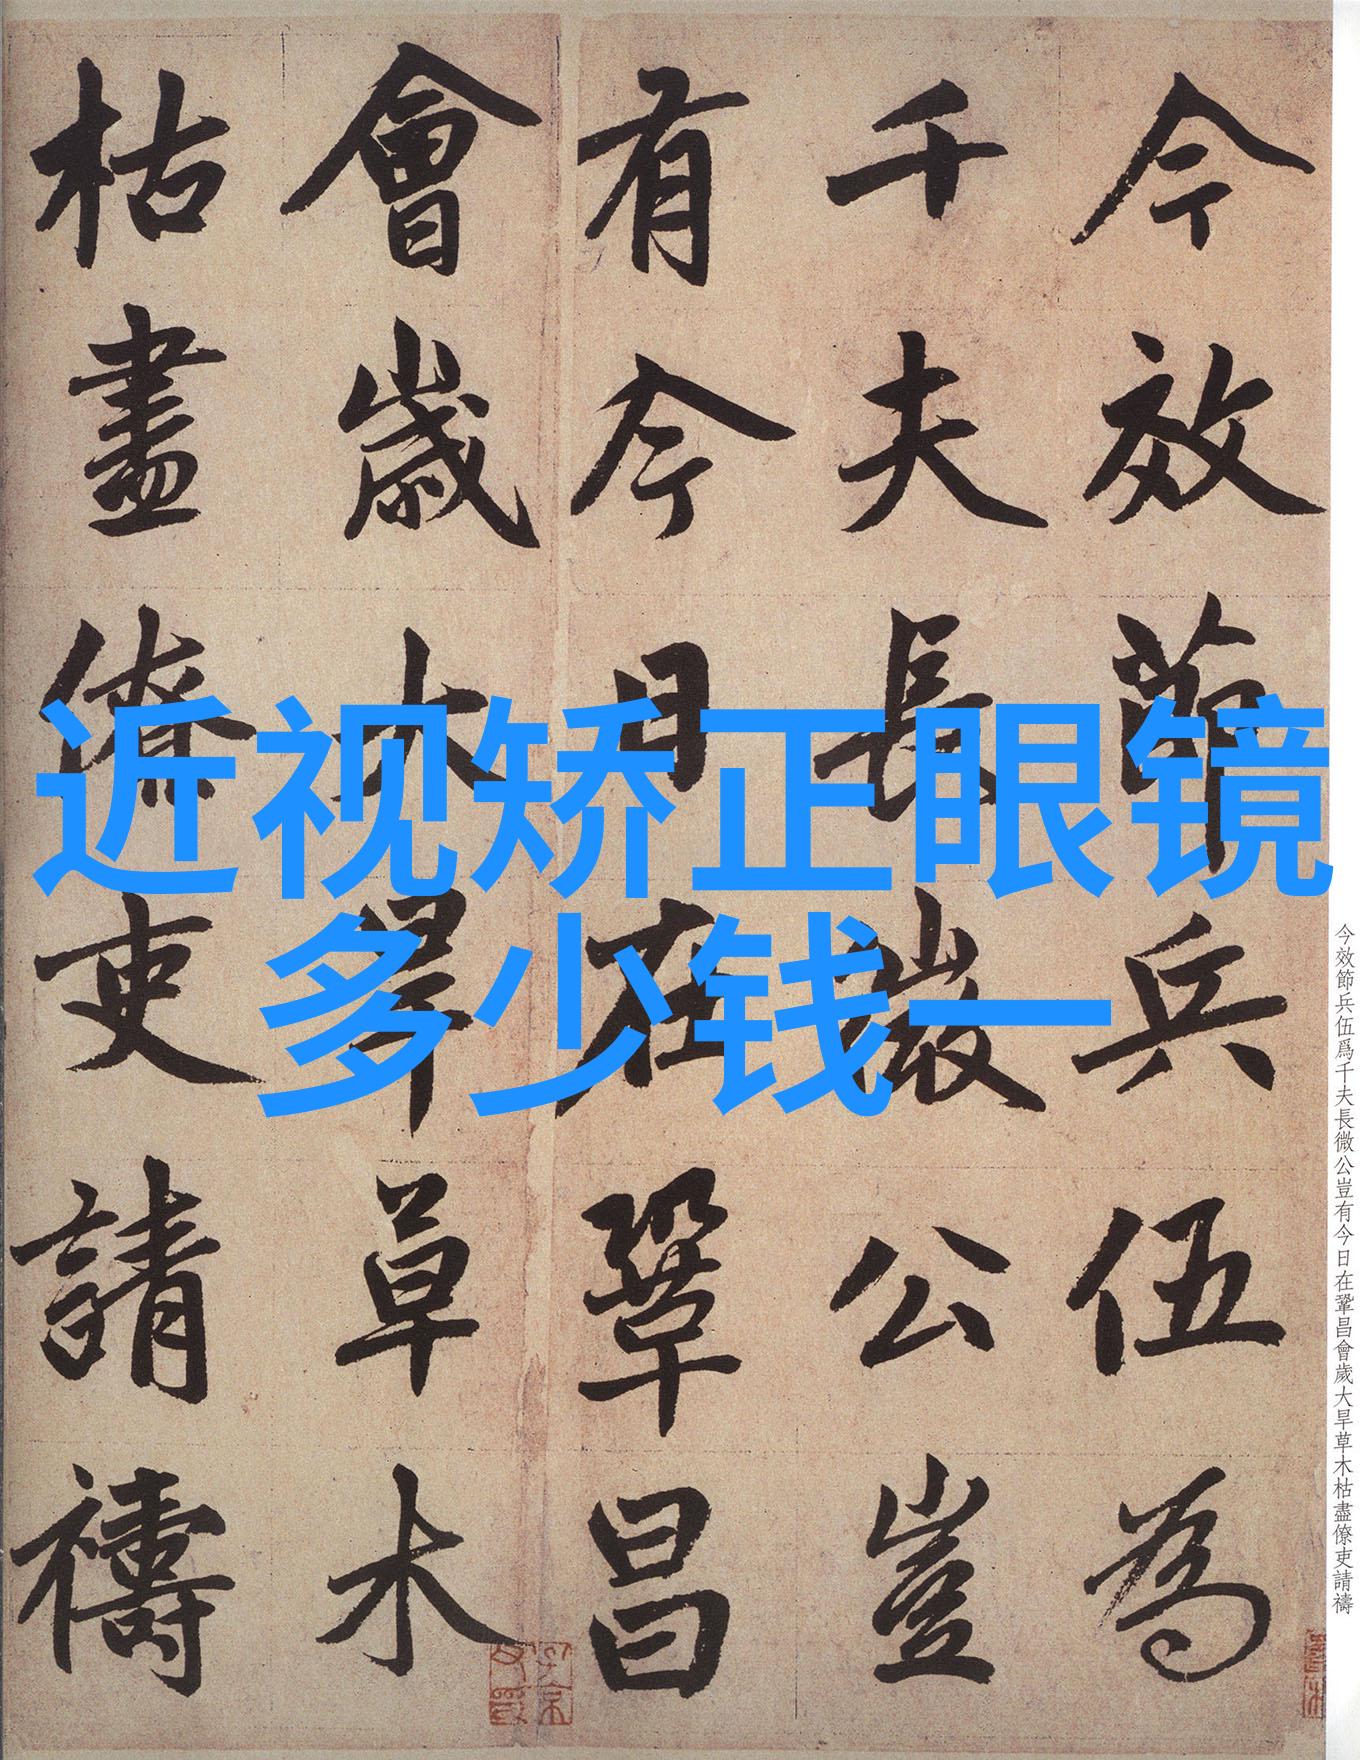 今效節兵伍為
千夫長微公豈
有今日在鞏昌
會歲大旱草木
枯盡僚吏請禱
近视矫正眼镜
多少钱一
今效節兵伍爲千夫長微公豈有今日在鞏昌會歲大旱草木枯盡僚吏請禱